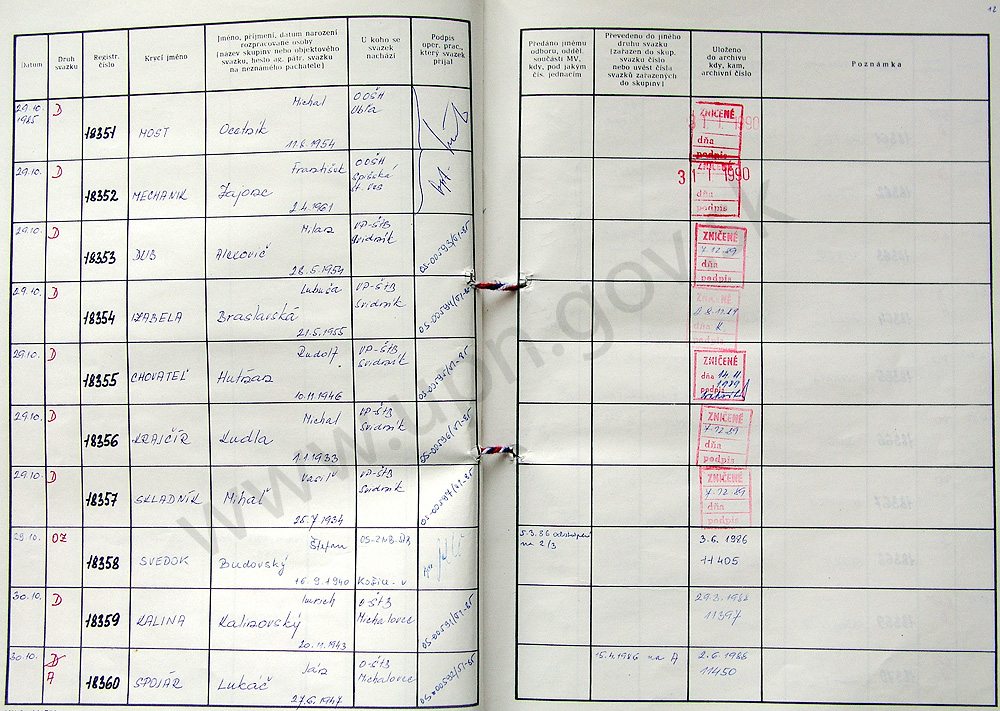 12
Datum
Druh svazku
Registr. číslo
Krycí jméno
Jméno, příjmení, datum narození
rozpracované osoby
(název skupiny nebo objektového
svazku, heslo ag. pátr. svazku
na neznámého pachatele)
U koho se
svazek
nachází
Podpis
oper. prac.,
který svazek
přijal
Předáno jinému
odboru, odděl.
součásti MV,
kdy, pod jakým
čís. jednacím
Převedeno do jiného
druhu svazku
(zařazen do skup.
svazku číslo
nebo uvést čísla
svazků zařazených
do skupiny)
Uloženo
do archivu
kdy, kam,
archivní číslo
Poznámka
29.10. 1985 D 18351 MOST Michal Ocetník 11.8.1954 OOŠH Ubľa
ZNIČENÉ
31 1 1990
dňa
podpis
29.10. D 18352 MECHANIK František Zajonc 2.4.1961 OOŠH Spišská St. Ves
ZNIČENÉ
31 1 1990
dňa
podpis
29.10. D 18353 DUB Milan Alexovič 28.5.1954 VP-ŠtB Svidník
ZNIČENÉ
7.12.89
dňa
podpis
29.10. D 18354 IZABELA Ľubuša Braslavská 21.5.1955 VP-ŠtB Svidník OS-00594/01-85
ZNIČENÉ
dňa
29.10. D 18355 CHOVATEĽ Rudolf Hutňan 10.11.1946 VP-ŠtB Svidník OS-00595/01-85
ZNIČENÉ
dňa 14.11
1989
podpis
29.10. D 18356 KRAJČÍR Michal Kudla 1.1.1933 VP-ŠtB Svidník OS-00596/01-85
ZNIČENÉ
7.12.89
dňa
podpis
29.10. D 18357 SKLADNÍK Vasiľ Mihaľ 25.7.1934 VP-ŠtB Svidník OS-00597/01-85
ZNIČENÉ
7.12.89
dňa
podpis
29.10. OZ 18358 SVEDOK Štefan Budovský 16.9.1940 5.3.86 odstúpení na 2/3 3.6.1986 11405
30.10. D 18359 KALINA Imrich Kalinovský 20.11.1943 O-ŠtB Michalovce OS-00591/01-85 11397
30.10. D A 18360 SPOJÁR Ján Lukáč 27.6.1947 O-ŠtB Michalovce OS-00592/01-85 15.4.1986 na A 11450
www.upn.gov.sk